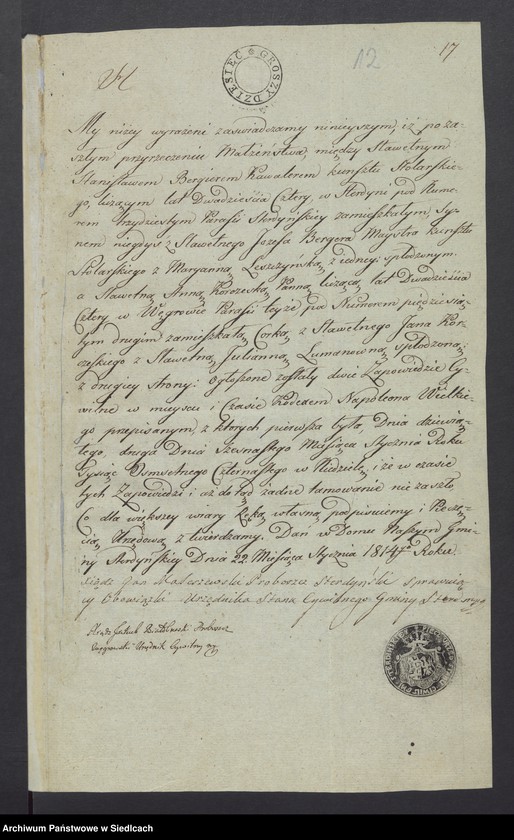 12
17
DZIESIĘĆ GROSZY
My niżey wyrażeni zaswiadczamy ninieyszym, iż po za-
szłym przyrzeczeniu Małżeństwa, między Sławetnym
Stanisławem Bergierem Kawalerem kunsztu Stolarskie-
go, liczącym lat Dwadzieścia Cztery, w Sterdyni pod Nume-
rem trzydziestym Parafii Sterdyńskiey zamieszkałym, Sy-
nem niegdyś Sławetnego Józefa Bergera Maystra kunsztu
Stolarskiego z Maryanną Leszczyńską z iedney: spłodzonym.
a Sławetną Anną Korozeską Panną liczącą lat Dwadzieścia
Cztery w Węgrowie Parafii teyże pod Numerem pięćdziesią-
tym drugim zamieszkałą, Corką z Sławetnego Jana Kor-
czeskiego z Sławetną Julianną Lumanowną spłodzoną;
z drugiey strony: Ogłoszone zostały dwie Zapowiedzie Cy-
wilne w mieyscu i Czasie Kodexem Napoleona Wielkie-
go przepisanym, z których pierwsza była, Dnia dziewią-
tego, druga Dnia Szesnastego Miesiąca Stycznia Roku
Tysiąc Osmsetnego Czternastego w Niedzielę; i że w czasie
tych Zapowiedzi i aż dotąd żadne tamowanie nie zaszło
Co dla większey wiary Ręką własną podpisuiemy i Pieczę-
cią Urzędową z twierdzamy. Dan w Domu Naszym Gmi-
ny Sterdyńskiey Dnia 22 Miesiąca Stycznia 1814go Roku
Xiądz Jan Maleszewski Proboszcz Sterdyński sprawuią-
cy Obowiązki Urzędnika Stanu Cywilnego Gminy Sterdyńskiey
Xiądz Jakub Proboszcz
Węgrowski Urzędnik Cywilny
Archiwum Państwowe w Siedlcach